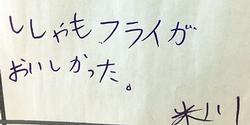 ししゃもフライが
おいしかった。
米川